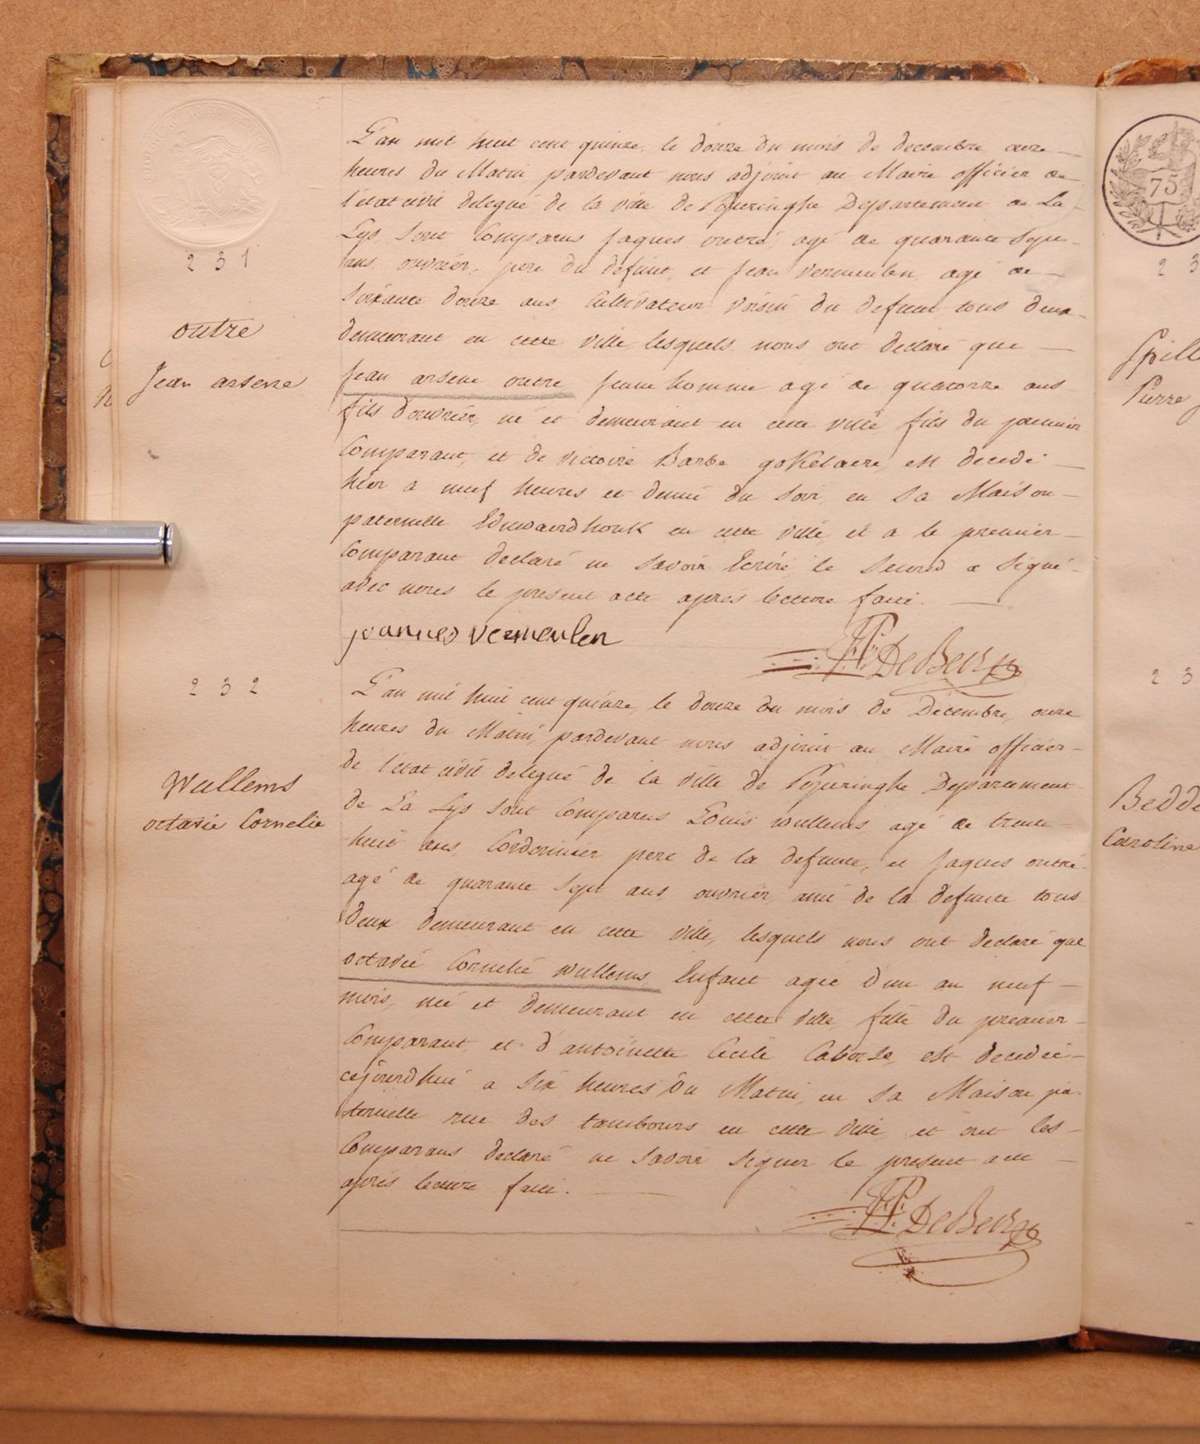 231
outre
Jean arsene
L'an mil huit cent quinze, le douze du mois de decembre onze
heures du Matin pardevant nous adjoint au Maire officier de
l'état civil delegué de la ville de Poperinghe Departement de La
Lys, sont Comparus Jaques outré, agé de quarante sept
ans, ouvrier, pere du défunt, et Jean vermeulen, agé de
soixante douze ans Cultivateur voisin du defunt tous deux
demeurant en cette ville lesquels nous ont declaré que
Jean arsene outre jeune homme agé de quatorze ans
fils d'ouvrier, né et demeurant en cette ville fils du premier
Comparant, et de victoire Barbe gokelaere est decedé
hier a neuf heures et demie du soir en sa Maison
paternelle Edewaerdhouk en cette ville et a le premier
Comparant declaré ne savoir Ecrire le second a signé
avec nous le present acte apres lecture faite.
joannes vermeulen
DeBeir
232
Wullems
octavie Cornelie
L'an mil huit cent quinze, le douze du mois de Décembre, onze
heures du Matin, pardevant nous adjoint au Maire officier
de l'état civil delegué de la ville de Poperinghe Departement
de La Lys sont Comparus Louis wullems agé de trente
huit ans, Cordonnier pere de la defunte, et Jaques outré
agé de quarante sept ans, ouvrier, ami de la defunte tous
deux demeurant en cette ville, lesquels nous ont declaré que
octavié Cornelié wullems Enfant agée d'un an neuf
mois, née et demeurant en cette ville fille du premier
Comparant, et d'antoinette Cecile est decedée
cejourdhui a six heures du Matin, en sa Maison pa-
ternelle rue des tambours en cette ville et ont les
Comparans declaré ne savoir signer le present acte
après lecture faite.
DeBeir
75
2 3
Spill
Pierre J
2 3
Bedde
Caroline